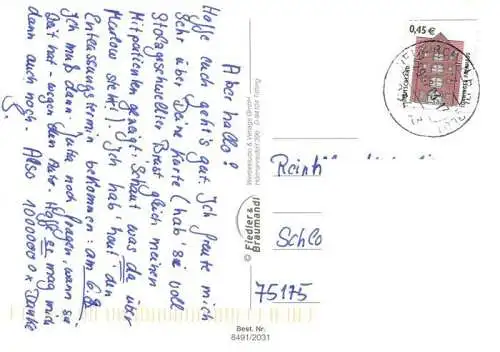 Aber hallo!
Hoffe euch geht's gut. Ich freute mich
sehr über Deine Karte (hab' sie voll
Stolzgeschwellter Brust gleich meinen
Mitpatienten gezeigt: Schaut was da über
steht). Ich hab' heut' den
Entlassungstermin bekommen: am 6.8.
Ich muß dann Jutta noch fragen, wann sie
Zeit hat - wegen dem Auto. Hoff er mag mich
dann auch noch. Also 1000000 x Danke
Werbestudio & Verlags GmbH
Best. Nr.
8491/2031
© Fiedler &
Braumandl
0,45 €
Reinh
Schlo
75175